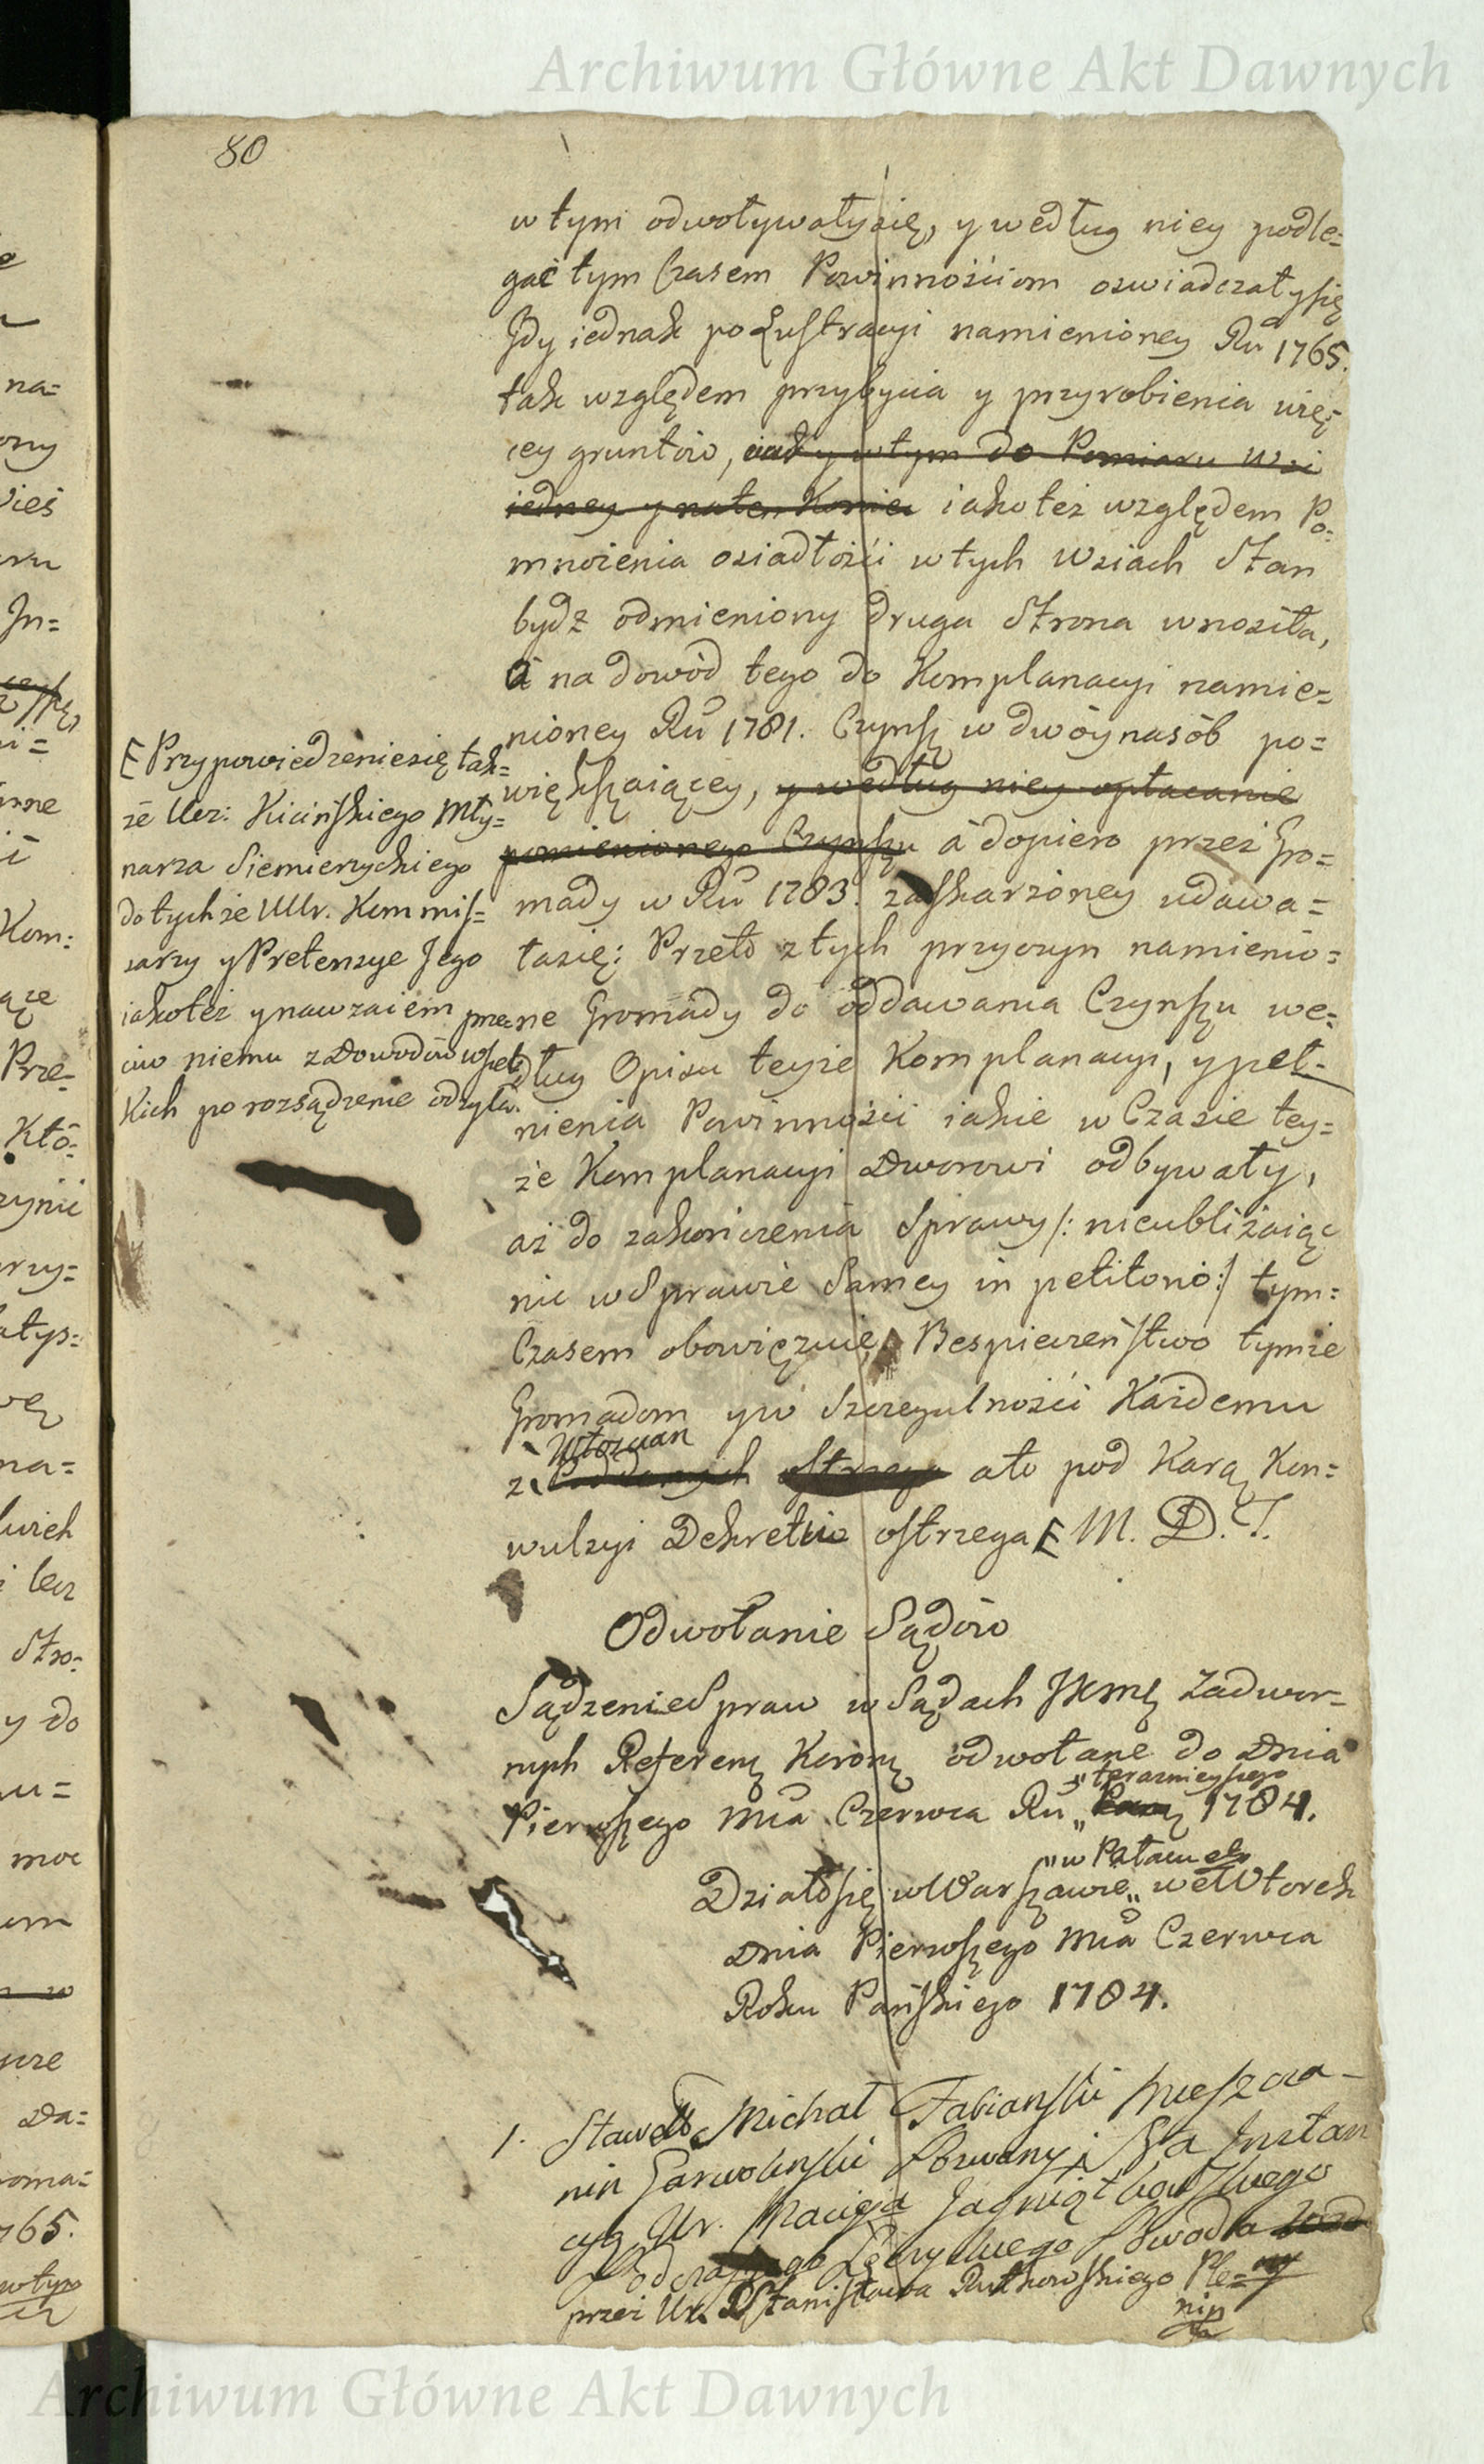 Archiwum Główne Akt Dawnych
80
w tym odwoływały się, y według niey podle=
gać tym Czasem Powinnościom oswiadczały się
Gdy iednak po Lustracyi namienioney Ru 1765.
tak względem przybycia y przyrobienia wię=
cey gruntów, y w tym do Pomiaru Wsi
iedney y na ten Koniec iakoteż względem Po=
mnożenia osiadłości w tych Wsiach Stan
bydź odmieniony druga Strona wnosiła,
à na dowód tego do Komplanacyi namie=
nioney Ru 1781. Czynsz w dwóynasób po=
większaiącey, y według niey opłacanie
pomienionego Czynszu à dopiero przez Gro=
mady w Ru 1783. zaskarżoney udawa=
ła się; Przeto z tych przyczyn namienio=
ne Gromady do oddawania Czynszu we=
dług Opisu teyże Komplanacyi, y peł=
nienia Powinności iakie w Czasie tey=
że Komplanacyi Dworowi odbywały,
aż do zakończenia Sprawy /: nieubliżaiąc
nic w Sprawie Samey in petitorio :/ tym=
Czasem obowięzuie, Bespieczeństwo tymże
Gromadom y w Szczegulności Każdemu
z Włościan
Poddanych ostrzega ato pod Karą Kon=
wulsyi Dekretu ostrzega E M. D. T.
E Przypowiedzenie się tak=
że Ur: Kicińskiego Mły=
narza Siemienychiego
do tychże Ur. Kommis=
sarzy y Pretensye Jego
iakoteż y nawzaiem prze=
ciw niemu z Dowodów wszel=
kich po rozsądzenie odsyła.
Odwołanie Sądów
Sądzenie Spraw w Sądach JKMę Zadwor=
nych Referenę Koronę odwołane do Dnia
„teraznieyszego
Pierwszego Mca Czerwca Ru „ 1784.
„w Pałacu
Działo się w Warszawie „ we Wtorek
Dnia Pierwszego Mca Czerwca
Roku Pańskiego 1784.
1. Stawał Michał Fabianski Mieszcza=
nin Garwolinski Pozwany i Za Instan
cyą Ur. Macieja Jagniątkowskiego
Łęczyckiego Powoda
przez Ur. Stanisława Rutkowskiego Ple=
nip
Archiwum Główne Akt Dawnych